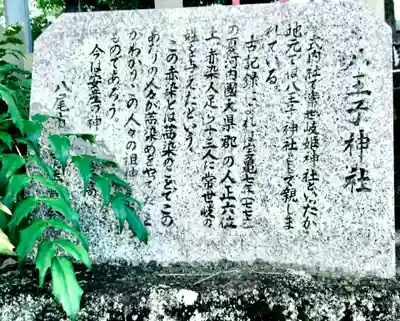 八王子神社
式内社で常世岐姫神社といゝたが
地元では八王子神社として親しま
れている。
古記録によれば宝亀七年(七七六)
の夏河内国大県郡の人正六位
上赤染人足ら十三人に常世岐の
姓を与えたという。
この赤染とは茜染のことでこの
あたりの人が茜染めをやってた
がわかり、この人々の祖神
ものであろう。
今は安産の神
八尾市